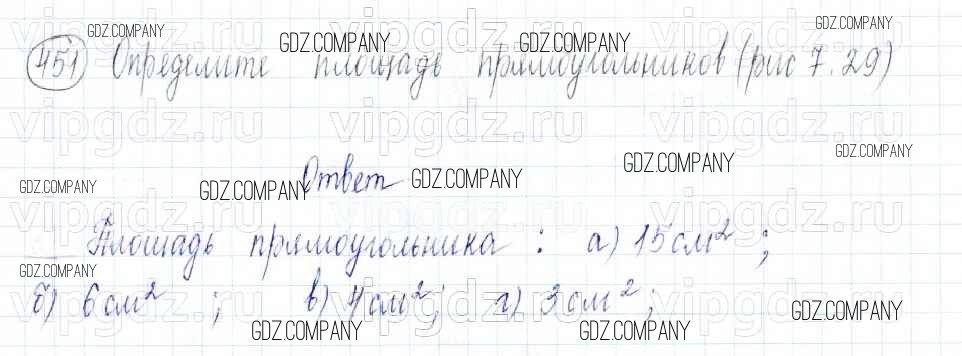 451 Определите площадь прямоугольников (рис 7.29)
Ответ
Площадь прямоугольника : а) 15 см² ;
б) 6 см² ; в) 4 см² ; г) 3 см² ;
vipgdz.ru vipgdz.ru vipgdz.ru
vipgdz.ru vipgdz.ru vipgdz.ru
vipgdz.ru vipgdz.ru vipgdz.ru
vipgdz.ru vipgdz.ru vipgdz.ru
GDZ.COMPANY
GDZ.COMPANY GDZ.COMPANY
GDZ.COMPANY
GDZ.COMPANY GDZ.COMPANY GDZ.COMPANY GDZ.COMPANY
GDZ.COMPANY GDZ.COMPANY
GDZ.COMPANY GDZ.COMPANY GDZ.COMPANY